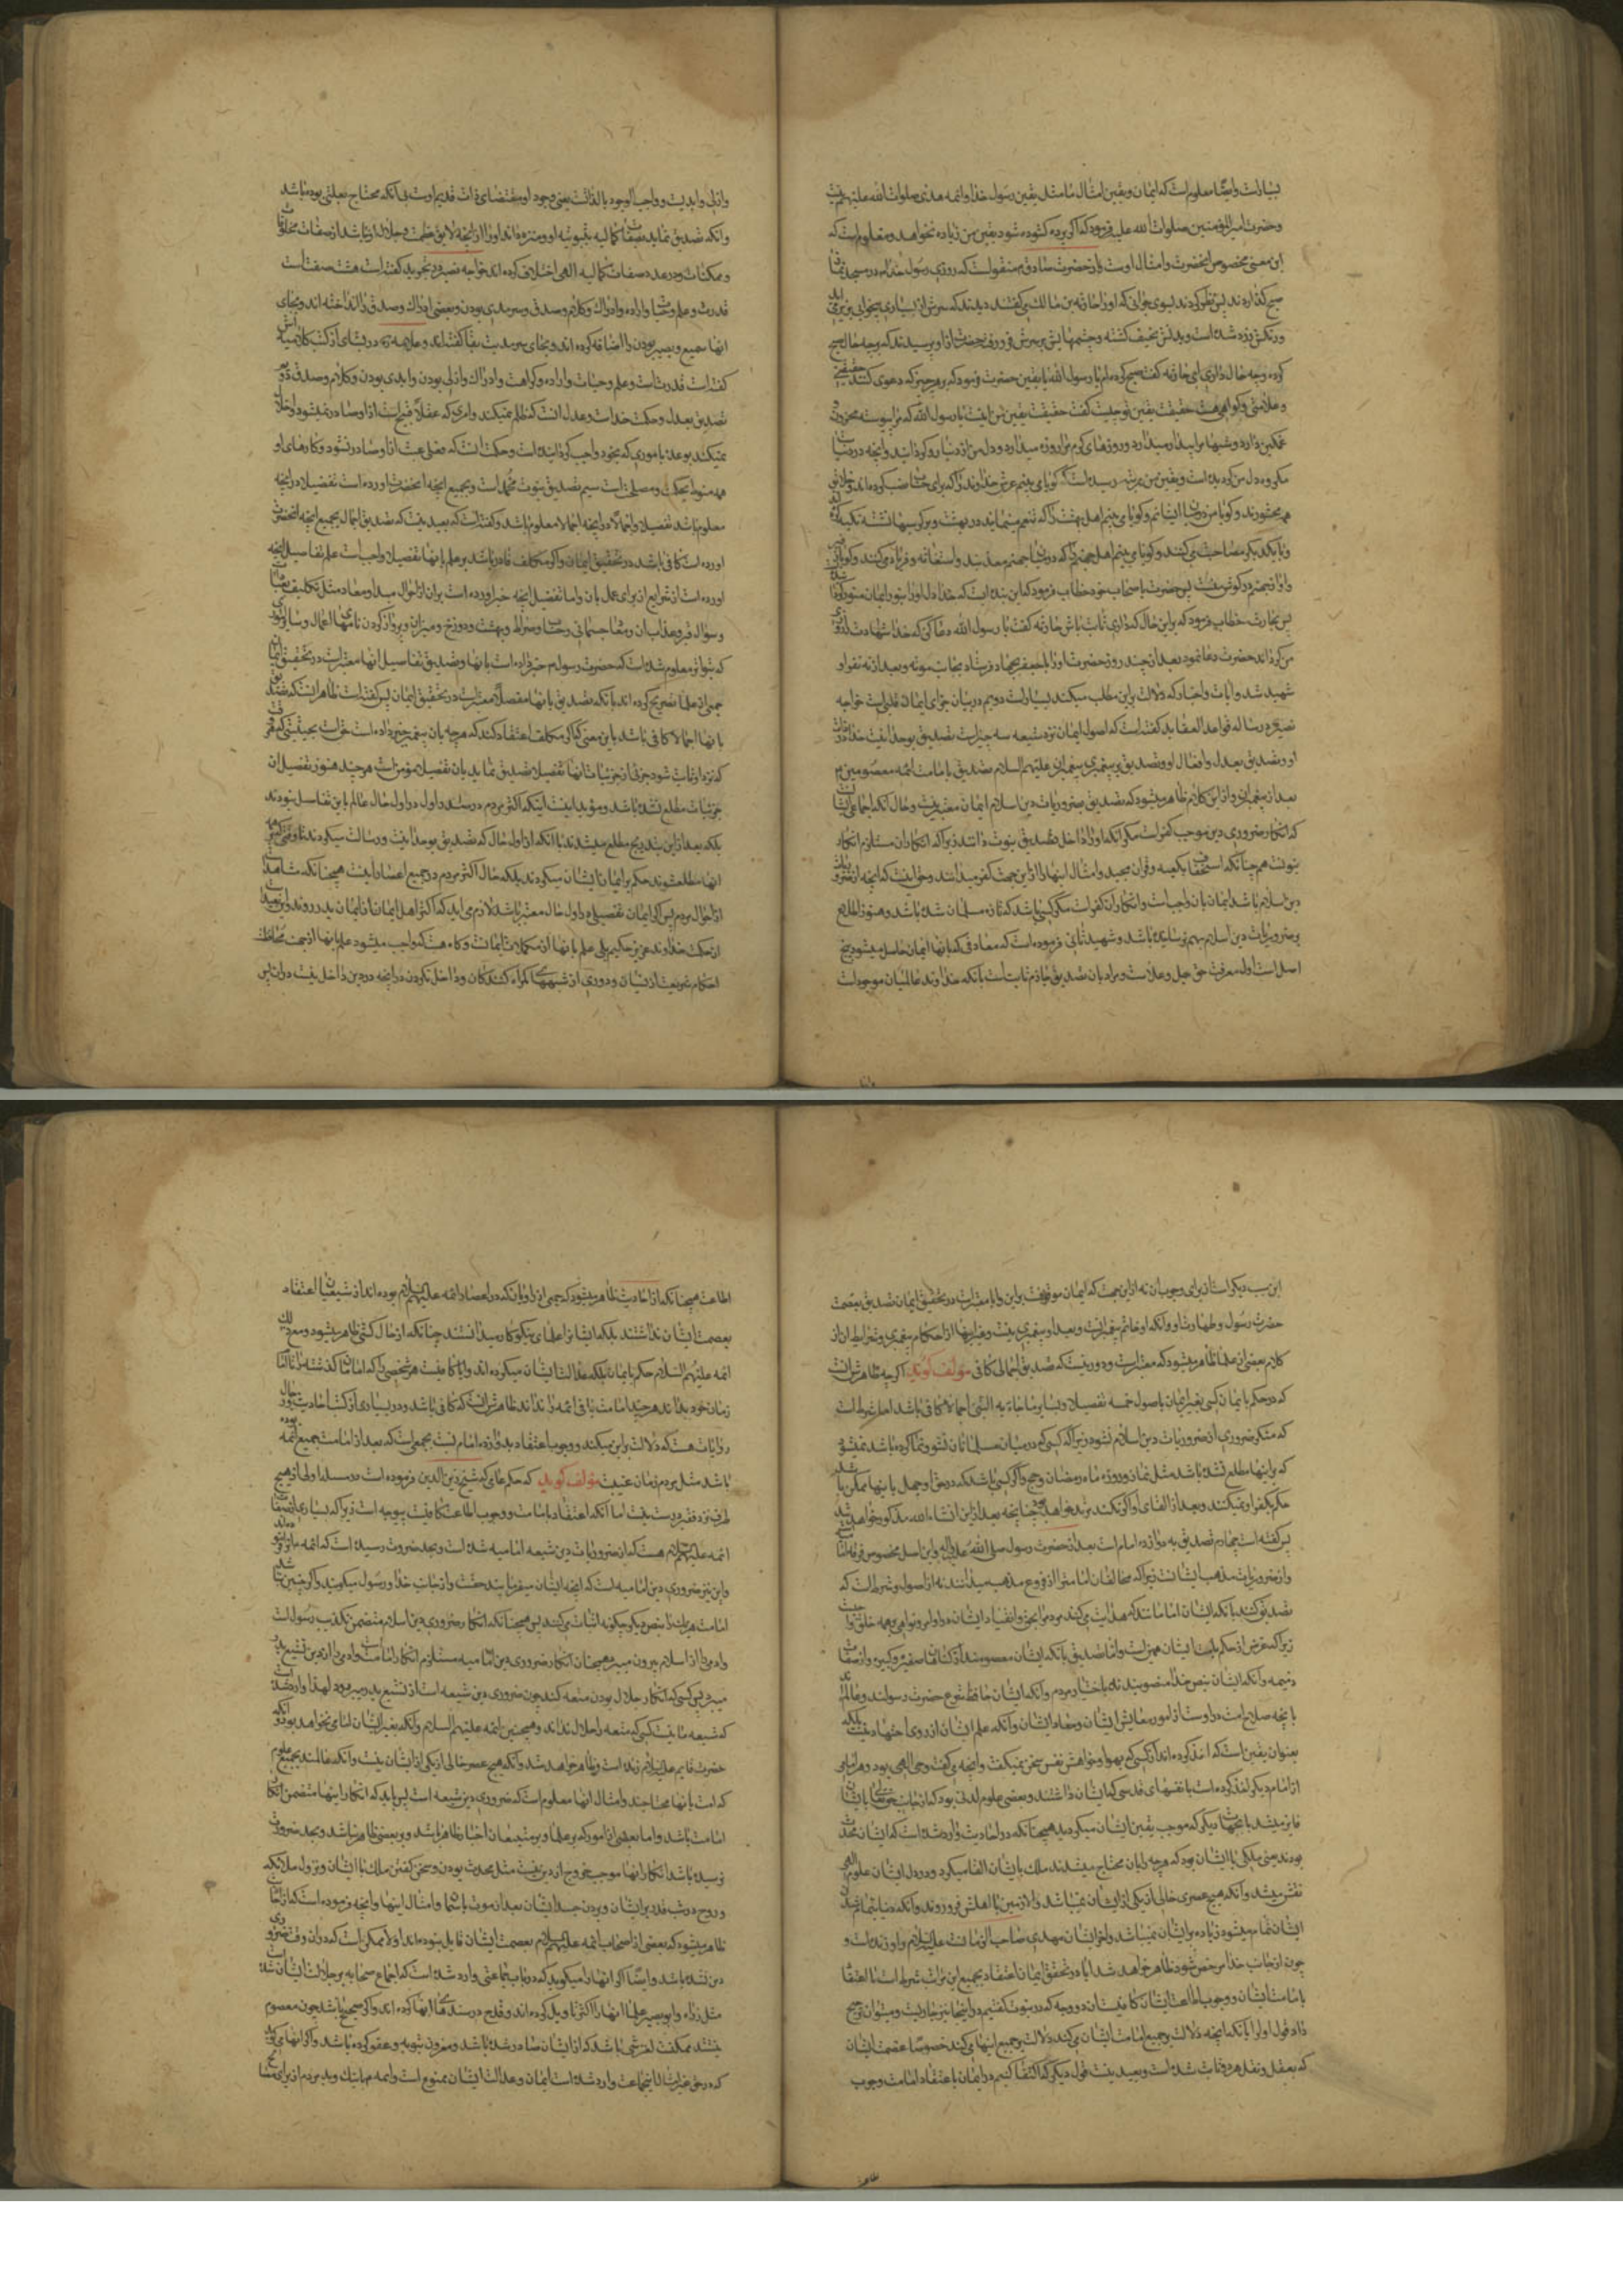 بسیار است و ایضا معلوم است که ایمان و یقین امثال ما مثل یقین رسول خدا و ائمه هدی صلوات الله علیهم نیست
و حضرت امیرالمؤمنین صلوات الله علیه فرمود که اگر پرده کشوده شود یقین من زیاده نخواهد و معلوم است که
این معنی مخصوص انحضرت و امثال اوست باز حضرت صادق منقولست که روزی رسول خدا در مسجد نماز
صبح کذاردند پس نظر کردند بسوی جوانی که او را حارثه بن مالک میکفتند دیدند که سرش از بسیاری بیخوابی بزیر می
و رنکش زرد شده است و بدنش نحیف کشته و چشمهایش در سرش فرو رفته حضرت از او پرسیدند که بچه حال صبح
کرده و چه حال داری ای حارثه کفت صبح کرده‌ام یا رسول الله با یقین حضرت فرمود که بر هر چیز که دعوی کنند حقیقتی
و علامتی و کواهی هست حقیقت یقین تو چیست کفت حقیقت یقین من اینست یا رسول الله که مرا پیوسته محزون و
غمکین دارد و شبها مرا بیدار میدارد و روزهای کرم مرا بروزه میدارد و دل من از دنیا رو کردانیده و انچه در دنیاست
مکروه دل من کردیده است و یقین من بمرتبه رسیده است که کویا می بینم عرش خداوند را که برای حساب نصب کرده‌اند و خلایق
همه محشور شدند و کویا من در میان ایشانم و کویا می بینم اهل بهشت را که تنعم مینمایند در بهشت و بر کرسیها نشسته تکیه کرده
و با یکدیکر مصاحبت میکنند و کویا می بینم اهل جهنم را که در میان جهنم معذبند و استغاثه و فریاد میکنند و کویا
اواز جهنم در کوش منست پس حضرت باصحاب خود خطاب فرمود که این بنده‌ایست که خدا دل او را بنور ایمان منور کرده
پس بحارثه خطاب فرمود که بر این حال که داری ثابت باش حارثه کفت یا رسول الله دعا کن که خدا شهادت را روزی
من کرداند حضرت دعا نمود بعد از چند روز حضرت او را با جعفر بجهاد فرستاد بجانب موته و بعد از نه نفر او
شهید شد و ایات و اخبار که دلالت بر این مطلب میکند بسیار است دویم در بیان اجزای ایمان قلبی است خواجه
نصیر در رساله قواعد العقاید کفته است که اصول ایمان نزد شیعه سه چیز است تصدیق بوحدانیت خدا در ذات
او و تصدیق بعدل و افعال او و تصدیق به پیغمبری پیغمبران علیهم السلام تصدیق بامامت ائمه معصومین
بعد از پیغمبران و از این کلام ظاهر میشود که تصدیق بضروریات دین اسلام ایمان معتبر نیست و حال آنکه اجماعی ایشان است
که انکار ضروری دین موجب کفر است مکر آنکه او را داخل تصدیق نبوت دانند زیرا که انکار ان مستلزم انکار
نبوت است همچنانکه استخفاف بکعبه و قرآن مجید و امثال اینها را از این جهت کفر میدانند و حق اینست که انچه از ضروریات
دین اسلام باشد ایمان بان واجبست و انکار ان کفر است مکر کسی باشد که تازه مسلمان شده باشد و هنوز اطلاع
بر ضروریات دین اسلام بهم نرسانیده باشد و شهید ثانی فرموده است که معارفی که بانها ایمان حاصل میشود پنج
اصل است اول معرفت حق جل و علاست و مراد بان تصدیق جازم ثابت است بآنکه خداوند عالمیان موجود است
و ازلی و ابدیست و واجب الوجود بالذات یعنی وجود او مقتضای ذات قدیم اوست بی آنکه محتاج بعلتی بوده باشد
و آنکه تصدیق نماید بصفات کمالیه ثبوتیه او و منزه داند او را از انچه لایق عظمت و جلال او نباشد از صفات مخلوقات
و ممکنات و در عدد صفات کمالیه الهی اختلاف کرده‌اند خواجه نصیر در تجرید کفته است هشت صفت است
قدرت و علم و حیات و اراده و ادراک و کلام و صدق و سرمدی بودن و بعضی ادراک و صدق را انداخته‌اند و بجای
انها سمیع و بصیر بودن را اضافه کرده‌اند و بجای سرمدیت بقا کفته‌اند و علامه ره در بسیاری از کتب کلامیه اش
کفته است قدرت است و علم و حیات و اراده و کراهت و ادراک و ازلی بودن و ابدی بودن و کلام و صدق دوم
تصدیق بعدل و حکمت خداست و عدل انست که ظلم نمیکند و امری که عقلا قبیح است از او صادر نمیشود و اخلال
نمیکند بوعده بامری که بخود واجب کردانیده است و حکمت آنست که فعل عبث از او صادر نشود و کارهای او
همه منوط بحکمت و مصلحت است سیم تصدیق بنبوت محمد است و بجمیع انچه انحضرت اورده است تفصیلا در انچه
معلوم باشد تفصیلا و اجمالا در انچه اجمالا معلوم باشد و کفته است که بعید نیست که تصدیق اجمالی بجمیع انچه انحضرت
اورده است کافی باشد در تحقیق ایمان و اکر مکلف قادر باشد بر علم بانها تفصیلا واجبست علم تفاصیل انچه
اورده است از شرایع از برای عمل بان و اما تفصیل انچه خبر داده است بان از احوال مبدا و معاد مثل تکلیف بعبادات
و سؤال قبر و عذاب ان و معاد جسمانی و حساب و صراط و بهشت و دوزخ و میزان و پرواز کردن نامهای اعمال و سایر
که بتواتر معلوم شده است که حضرت رسول خبر داده است بانها و تصدیق تفاصیل انها معتبر است در تحقیق ایمان
جمعی از علما تصریح کرده‌اند بآنکه تصدیق بانها مفصلا معتبر است در تحقیق ایمان پس کفته است ظاهر آنست که تصدیق
بانها اجمالا کافی باشد باین معنی که اکر مکلف اعتقاد کند که هر چه بان پیغمبر خبر داده است حق است بحیثیتی که هر وقت
که نزد او ثابت شود جزئی از جزئیات انها تفصیلا تصدیق نماید بان تفصیلا مؤمن است هر چند هنوز تفصیل ان
جزئیات مطلع نشده باشد و مؤید اینست اینکه اکثر مردم در صدر اول در اول حال عالم باین تفاصیل نبودند
بلکه بعد از این بتدریج مطلع میشدند با آنکه از اول حال که تصدیق بوحدانیت و رسالت میکردند
انها مطلع شوند حکم بر ایمان ایشان میکردند بلکه حال اکثر مردم در جمیع اعصار اینست همچنانکه مشاهد است
از احوال مردم پس اکر ایمان تفصیلی در اول حال معتبر باشد لازم می اید که اکثر اهل ایمان از ایمان بدر روند و این بعید است
از حکمت خداوند عزیز حکیم بلی علم بانها از مکملات ایمانست و کاه هست که واجب میشود علم بانها از جهت محافظت
احکام شریعت از نسیان و دوری از شبهه‌های کمراه کنندکان و داخل نکردن در انچه در دین داخل نیست در ان پس
این سبب دیکر است از برای وجوب ان نه از این جهت که ایمان موقوفست بر این و ایا معتبر است در تحقق ایمان تصدیق بعصمت
حضرت رسول و طهارت او و آنکه او خاتم پیغمبرانست و بعد از او پیغمبری نیست و غیر اینها از احکام پیغمبری و شرایط ان از
کلام بعضی از علما ظاهر میشود که معتبر است و دور نیست که تصدیق اجمالی کافی مؤلف کوید اکر چه ظاهرش آنست
که در حکم بایمان کسی بغیر ایمان باصول خمسه تفصیلا و بسایر ما جاء به النبی اجمالا کافی باشد اما شرط است
که منکر ضروری از ضروریات دین اسلام نشود زیرا که کسی که در میان مسلمانان نشو و نما کرده باشد نمیشود
که بر اینها مطلع نشده باشد مثل نماز و روزه ماه رمضان و حج و اکر کسی باشد که در حق او جهل باینها ممکن باشد
حکم بکفر او نمیکنند و بعد از القای او اکر نکند مرتد خواهد بود چنانچه بعد از این انشاء الله مذکور خواهد شد
پس کفته است چهارم تصدیق به دوازده امام است بعد از حضرت رسول صلی الله علیه و اله و این اصل مخصوص فرقه امامیه
و از ضروریات مذهب ایشانست زیرا که مخالفان امامت را از فروع مذهب میدانند نه از اصول و شرط است که
تصدیق کنند بآنکه ایشان امامانند که هدایت میکنند مردم را بحق و انقیاد ایشان در اوامر و نواهی بر همه خلق واجبست
زیرا که غرض از حکم بامامت ایشان همین است و اما تصدیق بآنکه ایشان معصومند از کناهان صغیره و کبیره و از صفات
ذمیمه و آنکه ایشان بنص خدا منصوبند نه باختیار مردم و آنکه ایشان حافظ شرع حضرت رسولند و عالمند
بانچه صلاح امت در اوست از امور معاش ایشان و معاد ایشان و آنکه علم ایشان از روی اجتهاد نیست بلکه
بعنوان یقین است که اخذ کرده‌اند از کسی که بهوا و خواهش نفس سخن نمیکفت و انچه می کفت وحی الهی بود و هر امامی
از امام دیکر اخذ کرده است با نفسهای قدسی که ایشان داشتند و بعضی علوم لدنی بود که از جانب حق تعالی بایشان
فایز میشد یا بجهتهای دیکر که موجب یقین ایشان میکردید همچنانکه در احادیث وارد شده است که ایشان محدث
بودند یعنی ملکی با ایشان بود که هر چه را بان محتاج میشدند ملک بایشان القا میکرد و در دل ایشان علوم الهی
نقش میشد و آنکه هیچ عصری خالی از یکی از ایشان نمیباشد والا زمین با اهلش فرو روند و آنکه دنیا بتمام شدن
ایشان تمام میشود و زیاده بر ایشان نمیباشد و اخر ایشان مهدی صاحب الزمانست علیه السلام و او زنده است و
چون از جانب خدا مرخص شود ظاهر خواهد شد ایا در تحقق ایمان اعتقاد بجمیع این مراتب شرط است یا اعتقاد
بامامت ایشان و وجوب اطاعت ایشان کافیست ان دو وجه که در نبوت کفتیم در اینجا نیز جاریست و میتوان ترجیح
داد قول اول را بآنکه انچه دلالت بر جمیع امامت ایشان میکند دلالت بر جمیع اینها میکند خصوصا عصمت ایشان
که بعقل و نقل هر دو ثابت شده است و بعید نیست قول دیکر که اکتفا کنیم در ایمان باعتقاد امامت و وجوب
اطاعت همچنانکه از احادیث ظاهر میشود که جمعی از راویان که در اعصار ائمه علیهم السلام بوده‌اند از شیعیان اعتقاد
بعصمت ایشان نداشتند بلکه ایشانرا علمای نیکوکار میدانستند چنانکه از رجال کشی ظاهر میشود و مع ذلک
ائمه علیهم السلام حکم بایمان بلکه عدالت ایشان میکرده‌اند و ایا کافیست هر شخصی را که امامان کذشته را تا امام
زمان خود بداند هر چند امامت باقی ائمه را نداند ظاهرش آنست که کافی باشد و در بسیاری از کتب احادیث و رجال
روایات هست که دلالت بر این میکند و وجوب اعتقاد بدوازده امام نسبت بجمعی است که بعد از امامت جمیع ائمه بوده
باشد مثل مردم زمان غیبت مؤلف کوید که حکم عامی که شیخ زین الدین فرموده است در مسئله اولی از هیچ
طرف نزد فقیر درست نیست اما آنکه اعتقاد بامامت و وجوب اطاعت کافیست بیوجه است زیرا که بسیاری از صفات
ائمه علیهم السلام هست که از ضروریات دین شیعه امامیه شده است و بحد ضرورت رسیده است که ائمه ما فرموده‌اند
و این نیز ضروری دین امامیه است که انچه ایشان میفرمایند حقست و از جانب خدا و رسول میکویند و اکر چنین نباشد
امامت هر یک از نص دیکر چکونه اثبات میکنند پس همچنانکه انکار ضروری دین اسلام متضمن تکذیب رسول است
و ادمی را از اسلام بیرون میبرد همچنان انکار ضروری دین امامیه مستلزم انکار امامت است و ادمی را از دین تشیع بدر
میبرد پس کسی که انکار حلال بودن متعه کند چون ضروری دین شیعه است از تشیع بدر میرود لهذا وارد شده است
که شیعه ما نیست کسی که متعه را حلال نداند و همچنین ائمه علیهم السلام و آنکه بغیر ایشان امامی نخواهد بود و آنکه
حضرت قایم علیه السلام زنده است و ظاهر خواهد شد و آنکه هیچ عصر خالی از یکی از ایشان نیست و آنکه عالمند بجمیع علوم
که امت بانها محتاجند و امثال انها معلوم است که ضروری دین شیعه است پس باید که انکار اینها متضمن انکار
امامت باشد و اما بعضی از امور که بر علما و بر متتبعان اخبار ظاهر باشد و بر بعضی ظاهر نباشد و بحد ضرورت
نرسیده باشد انکار انها موجب خروج از دین نیست مثل محدث بودن و سخن کفتن ملک با ایشان و نزول ملائکه
و روح در شب قدر بر ایشان و بردن جسد ایشان بعد از موت باسمان و امثال اینها و انچه فرموده است که از احادیث
ظاهر میشود که بعضی از اصحاب ائمه علیهم السلام بعصمت ایشان قایل نبوده‌اند اولا ممکن است که در ان وقت ضروری
دین نشده باشد و ایضا اکر انها را میکوید که در باب جماعتی وارد شده است که اجماع صحابه بر جلالت ایشان شده است
مثل زراره و ابوبصیر علما انها را اکثر تاویل کرده‌اند و قدح در سندهای انها کرده‌اند و اکر صحیح باشد چون معصوم
نیستند ممکنست لغزشی باشد که از ایشان صادر شده باشد و مقرون بتوبه و عفو کرده باشد و اکر انها میکوید
که در حق غیر این جماعت وارد شده است ایمان و عدالت ایشان ممنوع است و ائمه ما با نیک و بد مردم از برای مصالح